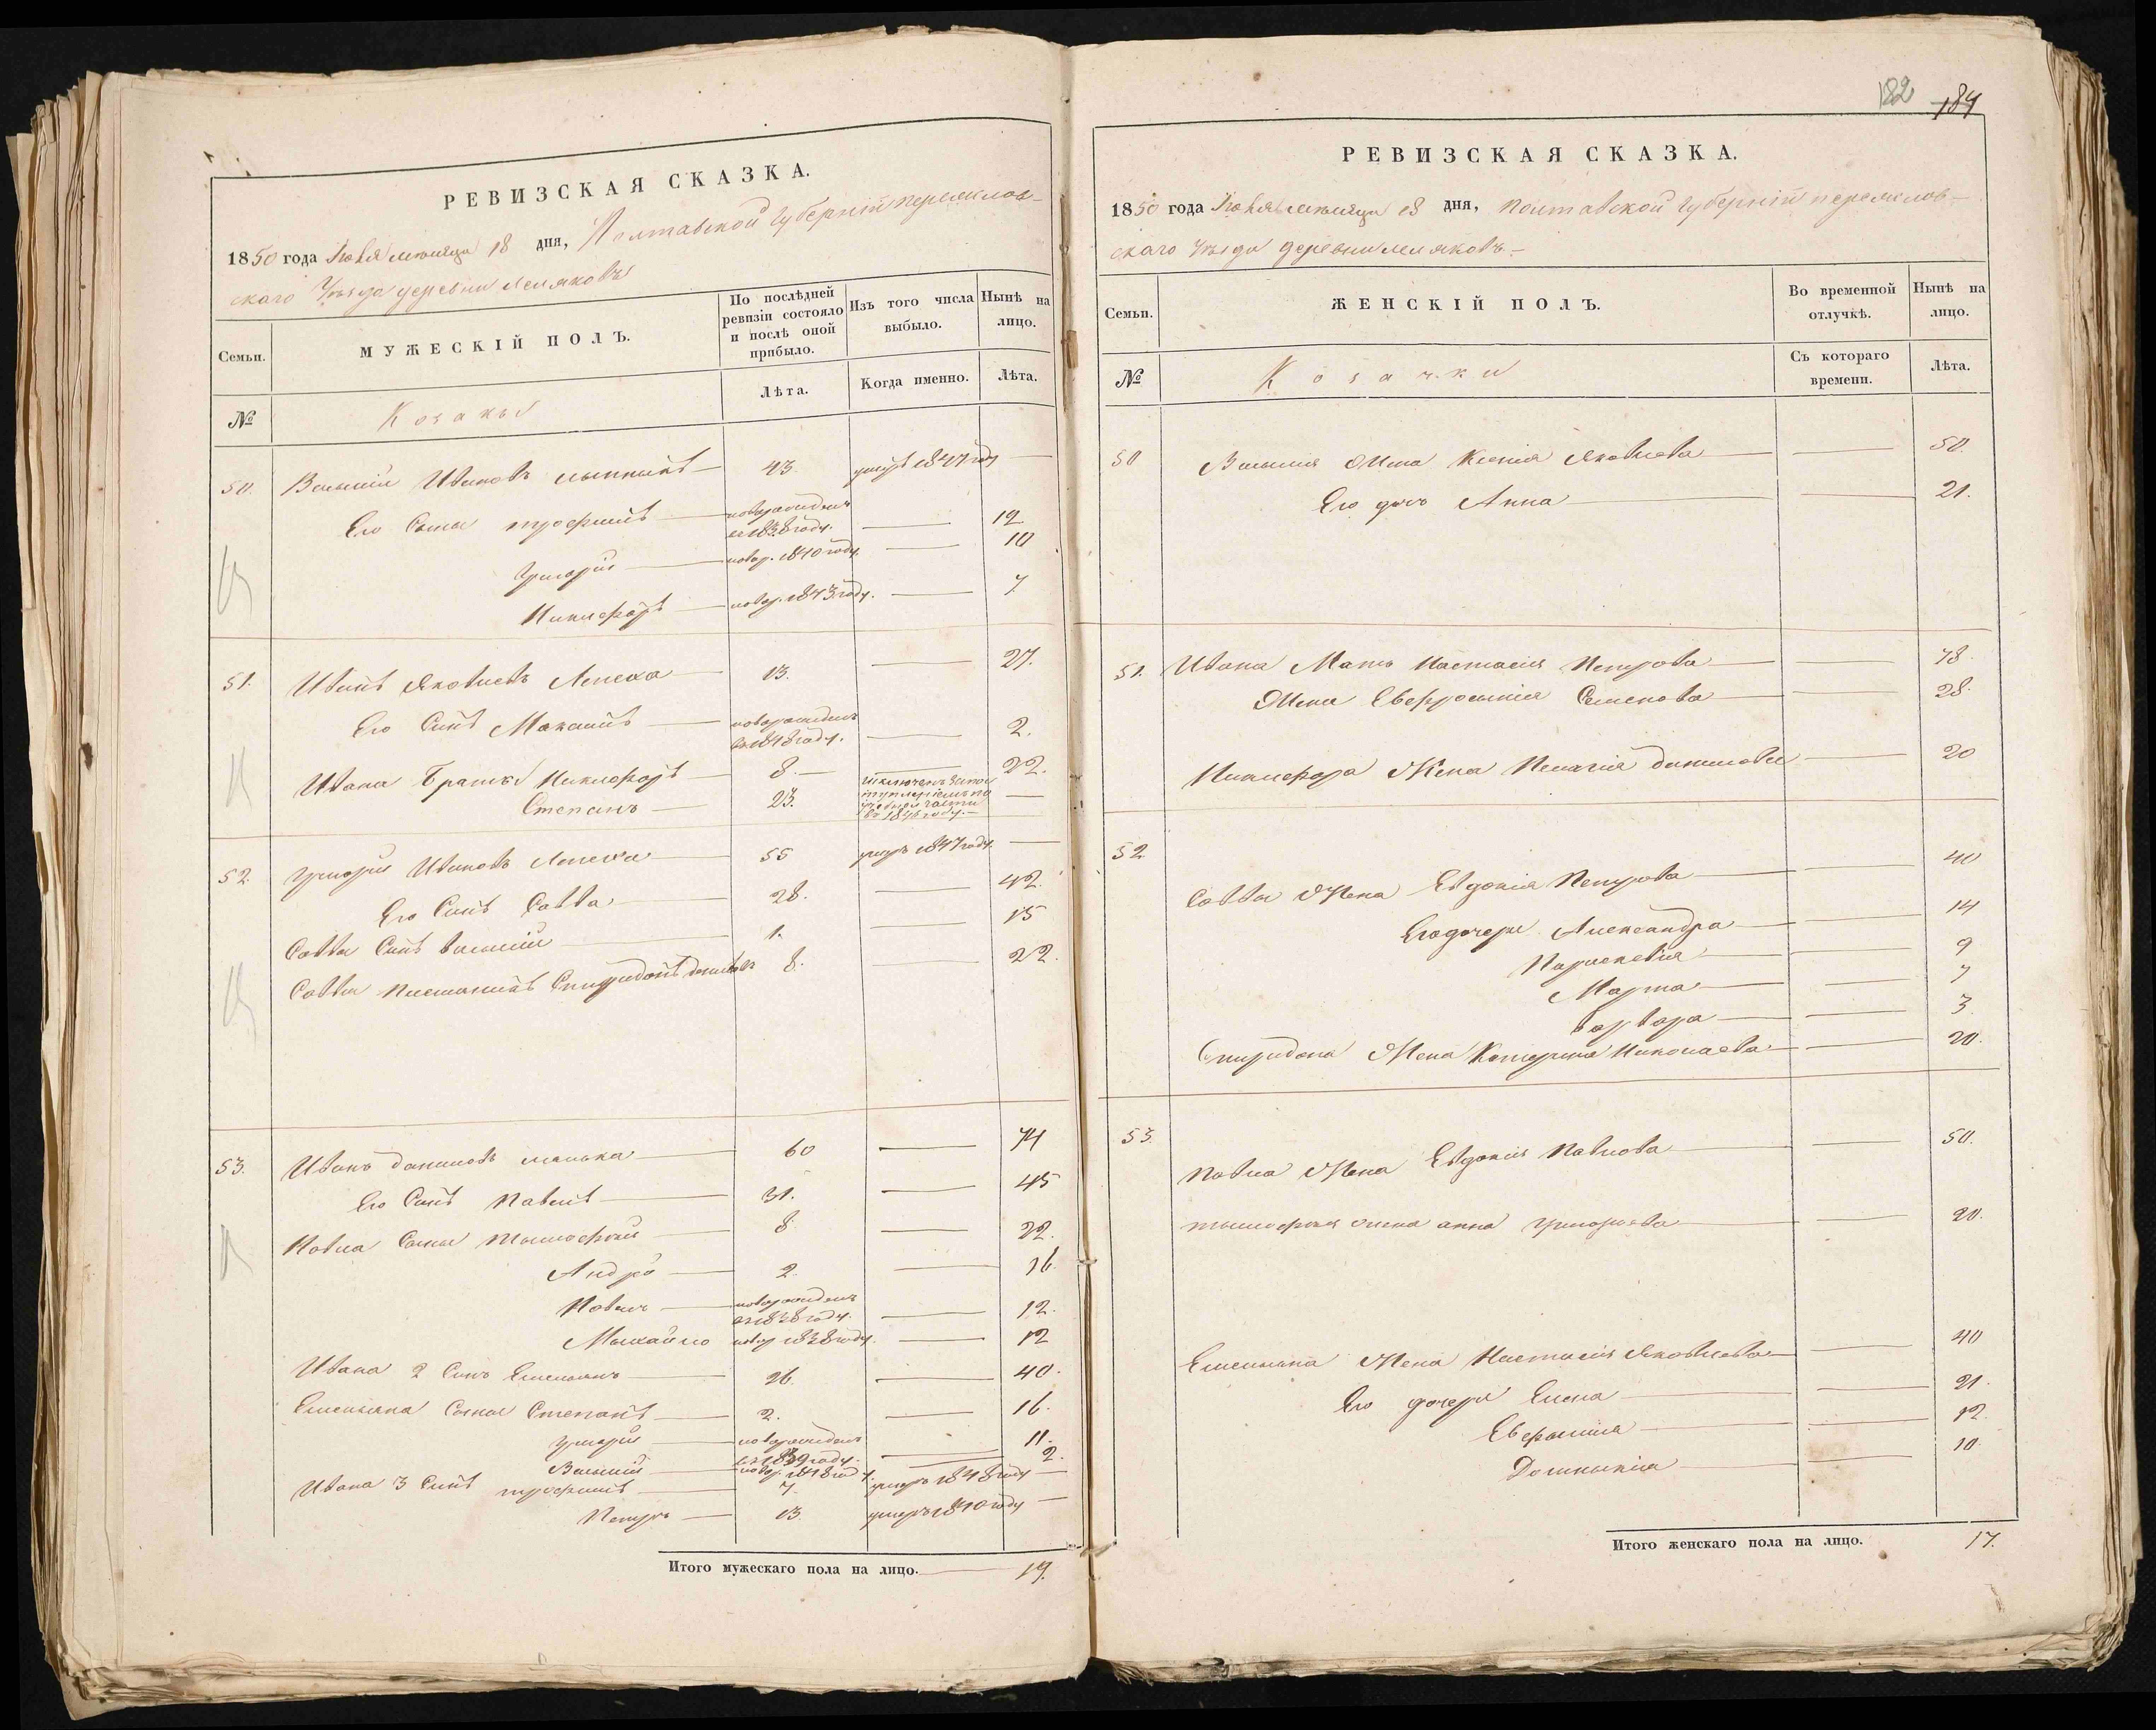 РЕВИЗСКАЯ СКАЗКА.
1850 года месяца 18 дня, Полтавской Губерніи переяслов-
скаго Уѣзда деревни Леляковъ
Семьи.
МУЖЕСКІЙ ПОЛЪ.
По послѣдней ревизіи состояло и послѣ оной прибыло.
Изъ того числа выбыло.
Нынѣ на лицо.
№
Козаки
Лѣта.
Когда именно.
Лѣта.
50. Василій Ивановъ 43. умеръ 1847 году —
Его Сыны трофимъ новорожденъ въ 1838 году. — 12
Григорій новор. 1840 году. — 10
Никифоръ новор. 1843 году. — 7
51. Иванъ Яковлевъ Лепеха 13. — 27.
Его Сынъ Максимъ новорожденъ въ 1848 году. — 2.
Ивана Братья Никифоръ 8. — 22.
Степанъ 23. въ 1846 году. —
52. Григорій Ивановъ Лепеха 55 умеръ 1847 году. —
Его Сынъ Савва 28. — 42.
Саввы Сынъ василій 1. — 15
Саввы Племянникъ Спиридонъ даниловъ 8. — 22.
53. Иванъ даниловъ 60 — 74
Его Сынъ Павелъ 31. — 45
Павла Сыны Тимофей 8. — 22.
Андрѣ 2. — 16.
Павелъ новорожденъ въ 1838 году. — 12.
Михайло новор 1838 году. — 12
Ивана 2 Сынъ Емельянъ 26. — 40.
Емельяна Сыны Степанъ 2. — 16.
Григорій новорожденъ въ 1839 году. — 11.
Василій новор. 1848 году. — 2.
Ивана 3 Сынъ трофимъ 7. умеръ 1848 году —
Петръ 13. умеръ 1840 году —
Итого мужескаго пола на лицо. — 19.
182 184
РЕВИЗСКАЯ СКАЗКА.
1850 года месяца 18 дня, Полтавской Губерніи переяслов-
скаго Уѣзда деревни Леляковъ —
Семьи.
ЖЕНСКІЙ ПОЛЪ.
Во временной отлучкѣ.
Нынѣ на лицо.
№
Козачки
Съ котораго времени.
Лѣта.
50 Василія Жена Ксенія Яковлева — 50.
Его дочь Анна — 21.
51. Ивана Мать Настасія Петрова — 78.
Жена Евфросинія Семенова — 28.
Никифора Жена Пелагія данилова — 20
52. Саввы Жена Евдокія Петрова — 40
Его дочери Александра — 14
Параскевія — 9
Марта — 7
варвара — 3.
Спиридона Жена Катерина Николаева — 20.
53. Павла Жена Евдокія Павлова — 50.
тимофея жена анна Григорьева — 20.
Емельяна Жена Настасія Яковлева — 40
Его дочери Елена — 21.
Евфимія — 12.
Домникія — 10.
Итого женскаго пола на лицо. 17.